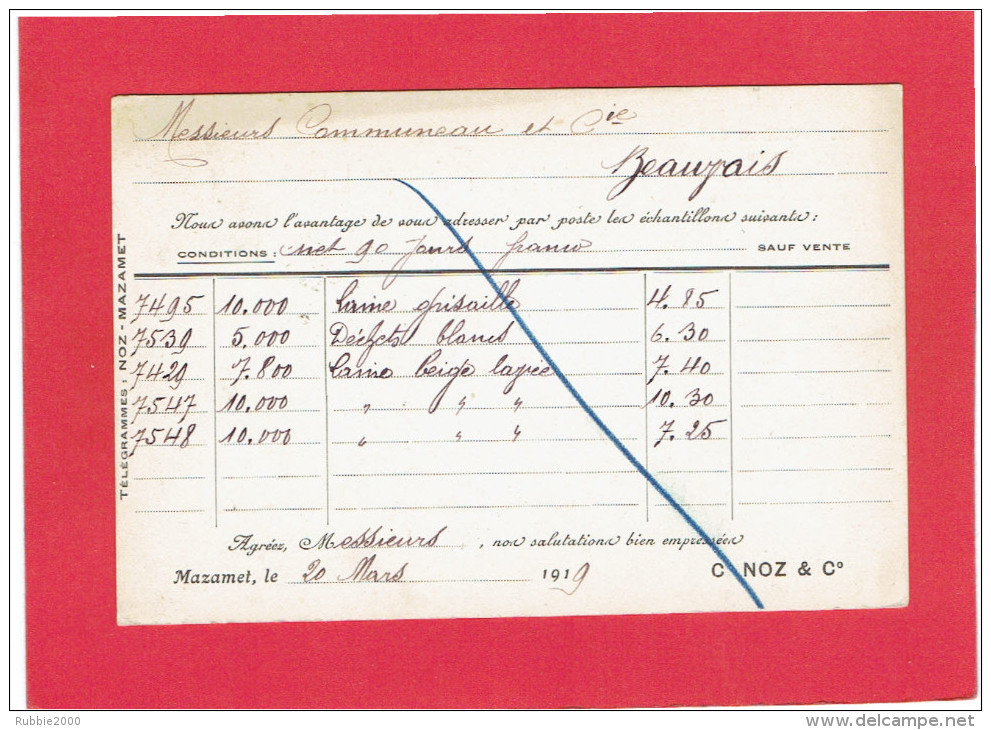 Messieurs Communeau et Cie
Beauvais
Nous avons l'avantage de vous adresser par poste les échantillons suivants:
CONDITIONS: net 90 jours franco SAUF VENTE
7495 10.000 Laine grisaille 4.85
7539 5.000 Déchets blancs 6.30
7429 7.800 Laine beige lagrée 7.40
7547 10.000 " " " 10.30
7548 10.000 " " " 7.25
Agréez, Messieurs, nos salutations bien empressées
Mazamet, le 20 Mars 1919 C. NOZ & Co
TÉLÉGRAMMES: NOZ-MAZAMET
Rubbie2000
www.delcampe.net